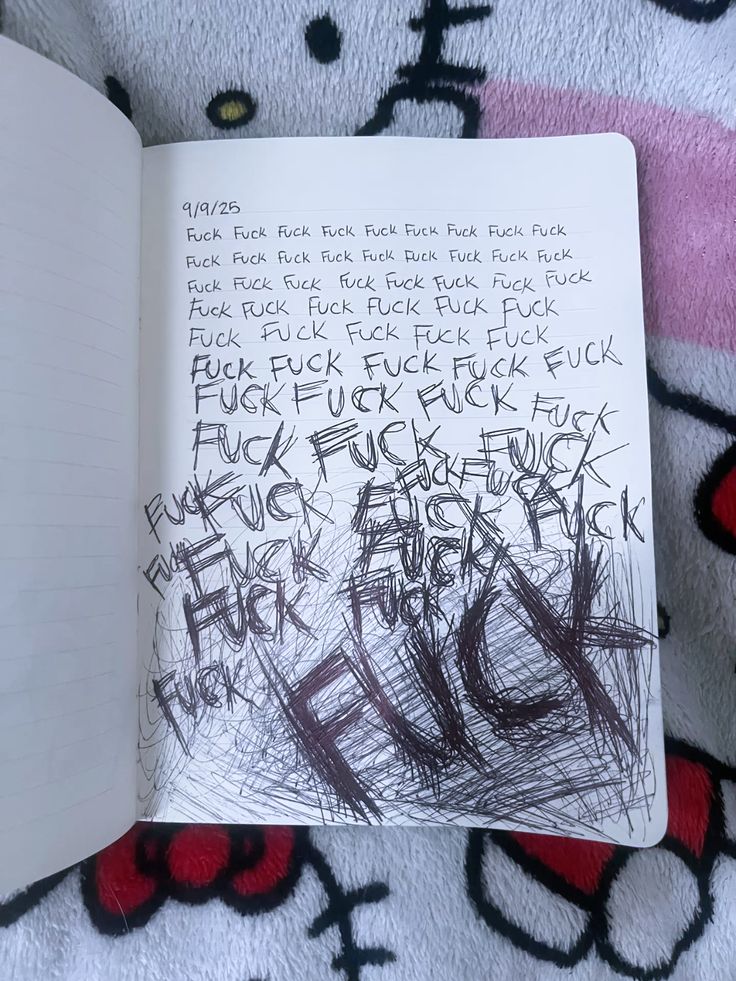 9/9/25
FUCK FUCK FUCK FUCK FUCK FUCK FUCK FUCK FUCK
FUCK FUCK FUCK FUCK FUCK FUCK FUCK FUCK FUCK
FUCK FUCK FUCK FUCK FUCK FUCK FUCK FUCK
FUCK FUCK FUCK FUCK FUCK FUCK
FUCK FUCK FUCK FUCK FUCK
FUCK FUCK FUCK FUCK FUCK
FUCK FUCK FUCK FUCK
FUCK FUCK FUCK
FUCK FUCK
FUCK FUCK FUCK FUCK
FUCK FUCK FUCK
FUCK FUCK
FUCK
FUCK